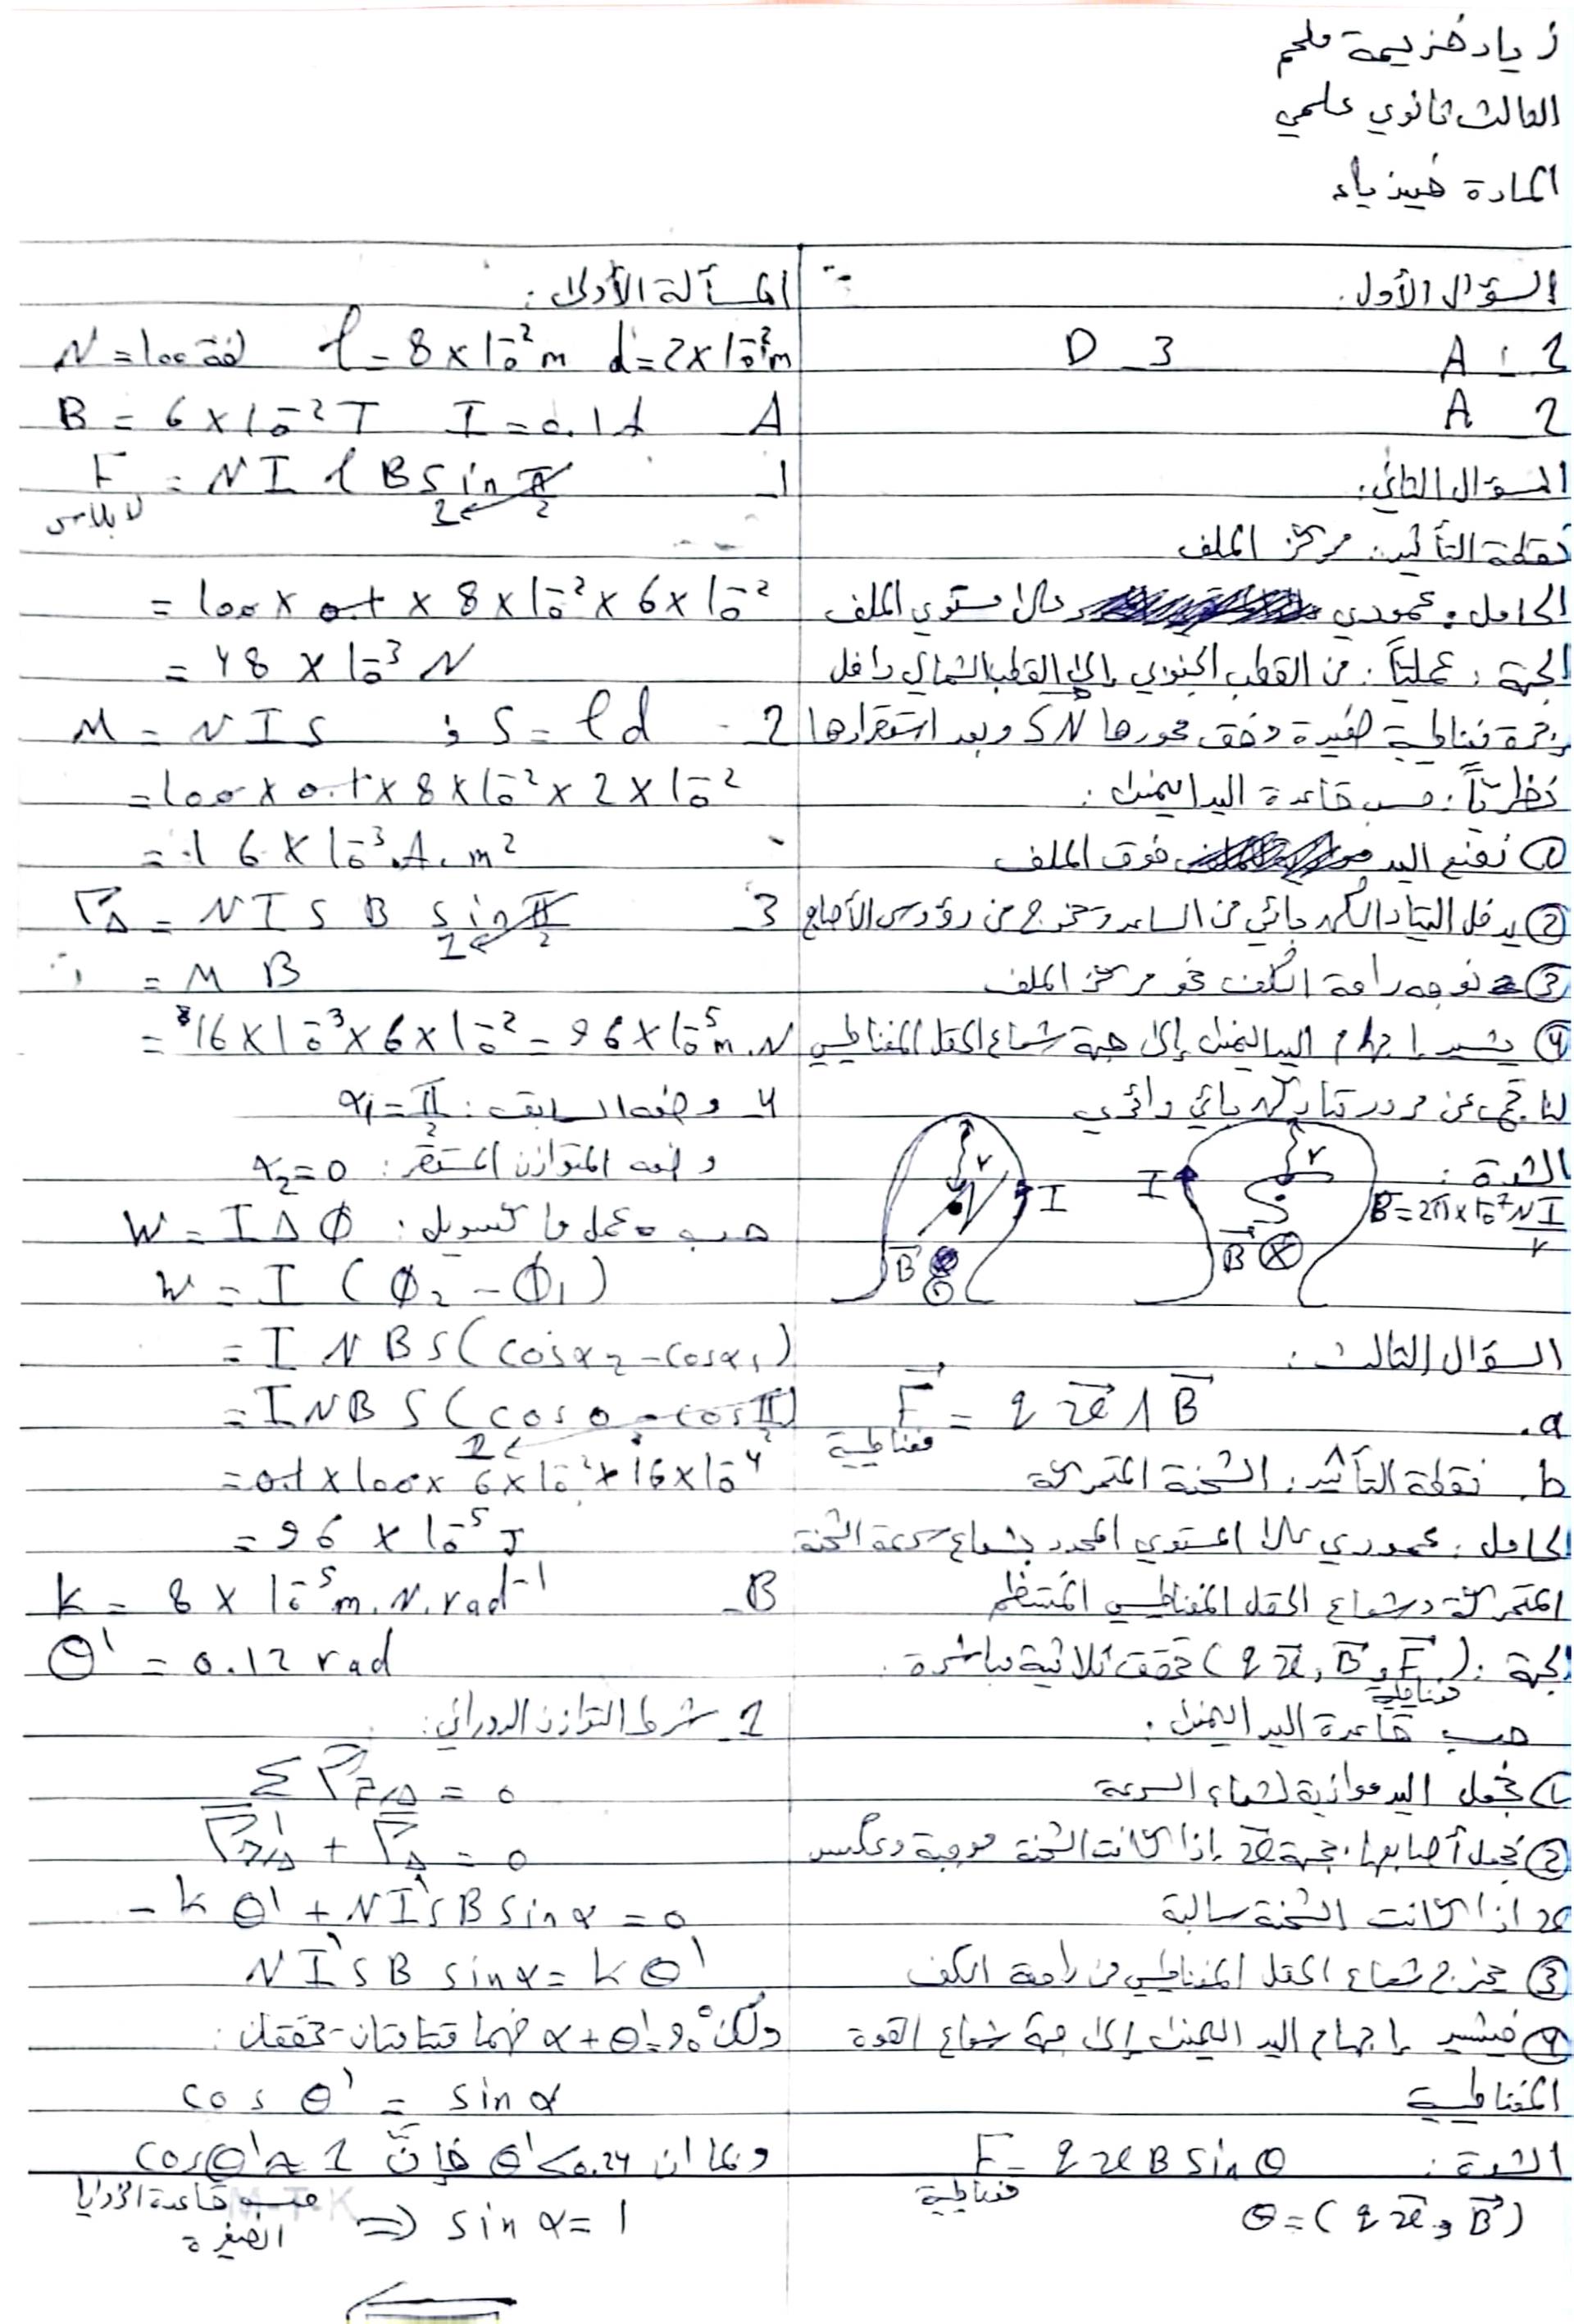 زياد خزيمة ملحم
الثالث ثانوي علمي
المادة فيزياء
السؤال الأول:
1 - A    3 - D
2 - A
السؤال الثاني:
نقطة التأثير: مركز الملف
الحامل: عمودي على مستوي الملف
الجهة: عملياً: من القطب الجنوبي إلى القطب الشمالي داخل
إبرة مغناطيسية صغيرة وفق محورها SN وبعد استقرارها
نظرياً: حسب قاعدة اليد اليمنى:
① نضع اليد فوق الملف
② يدخل التيار الكهربائي من الساعد وتخرج من رؤوس الأصابع
③ نوجه راحة الكف نحو مركز الملف
④ يشير إبهام اليد اليمنى إلى جهة شعاع الحقل المغناطيسي
لناتج عن مرور تيار كهربائي دائري
الشدة:
B = 2π×10⁻⁷ NI/r
I r S B ⊗
I r N B ⊙
السؤال الثالث:
a. F مغناطيسية = q v ∧ B
b. نقطة التأثير: الشحنة المتحركة
الحامل: عمودي على المستوي المحدد بشعاع سرعة الشحنة
المتحركة وشعاع الحقل المغناطيسي المنتظم
الجهة: (q v, B, F مغناطيسية) تحقق ثلاثية مباشرة.
حسب قاعدة اليد اليمنى:
① نجعل اليد موازية لشعاع السرعة
② نجعل أصابعها بجهة v إذا كانت الشحنة موجبة وعكس
v اذا كانت الشحنة سالبة
③ يخرج شعاع الحقل المغناطيسي من راحة الكف
④ فيشير إبهام اليد اليمنى إلى جهة شعاع القوة
المغناطيسية
الشدة: F مغناطيسية = q v B sin θ
θ = (q v, B)
المسألة الأولى:
N = 100 لفة  l = 8×10⁻² m  d = 2×10⁻² m
A  B = 6×10⁻² T  I = 0.1 A
1- F لابلاس = N I l B sin π/2 → 1
= 100 × 0.1 × 8×10⁻² × 6×10⁻²
= 48 × 10⁻³ N
2- M = N I S ; S = l d
= 100 × 0.1 × 8×10⁻² × 2×10⁻²
= 16 × 10⁻³ A.m²
3- Γ_Δ = N I S B sin π/2 → 1
= M B
= 16×10⁻³ × 6×10⁻² = 96×10⁻⁵ m.N
4- وضعه السابق: α₁ = π/2
وضعه المتوازن المستقر: α₂ = 0
حسب عمل ماكسويل: W = I Δ Φ
W = I (Φ₂ - Φ₁)
= I N B S (cos α₂ - cos α₁)
= I N B S (cos 0 - cos π/2) → 1
= 0.1 × 100 × 6×10⁻² × 16×10⁻⁴
= 96 × 10⁻⁵ J
B- k = 8 × 10⁻⁵ m.N.rad⁻¹
θ' = 0.12 rad
1- شرط التوازن الدوراني:
Σ Γ_F/Δ = 0
Γ'_η/Δ + Γ_Δ = 0
- k θ' + N I' S B sin α = 0
N I' S B sin α = k θ'
ولكن α + θ' = 90° فهما متتامتان تحققان:
cos θ' = sin α
وبما ان θ' < 0.24 فإنّ cos θ' ≈ 1
حسب قاعدة الزوايا الصغيرة ⇒ sin α = 1
M-T-K